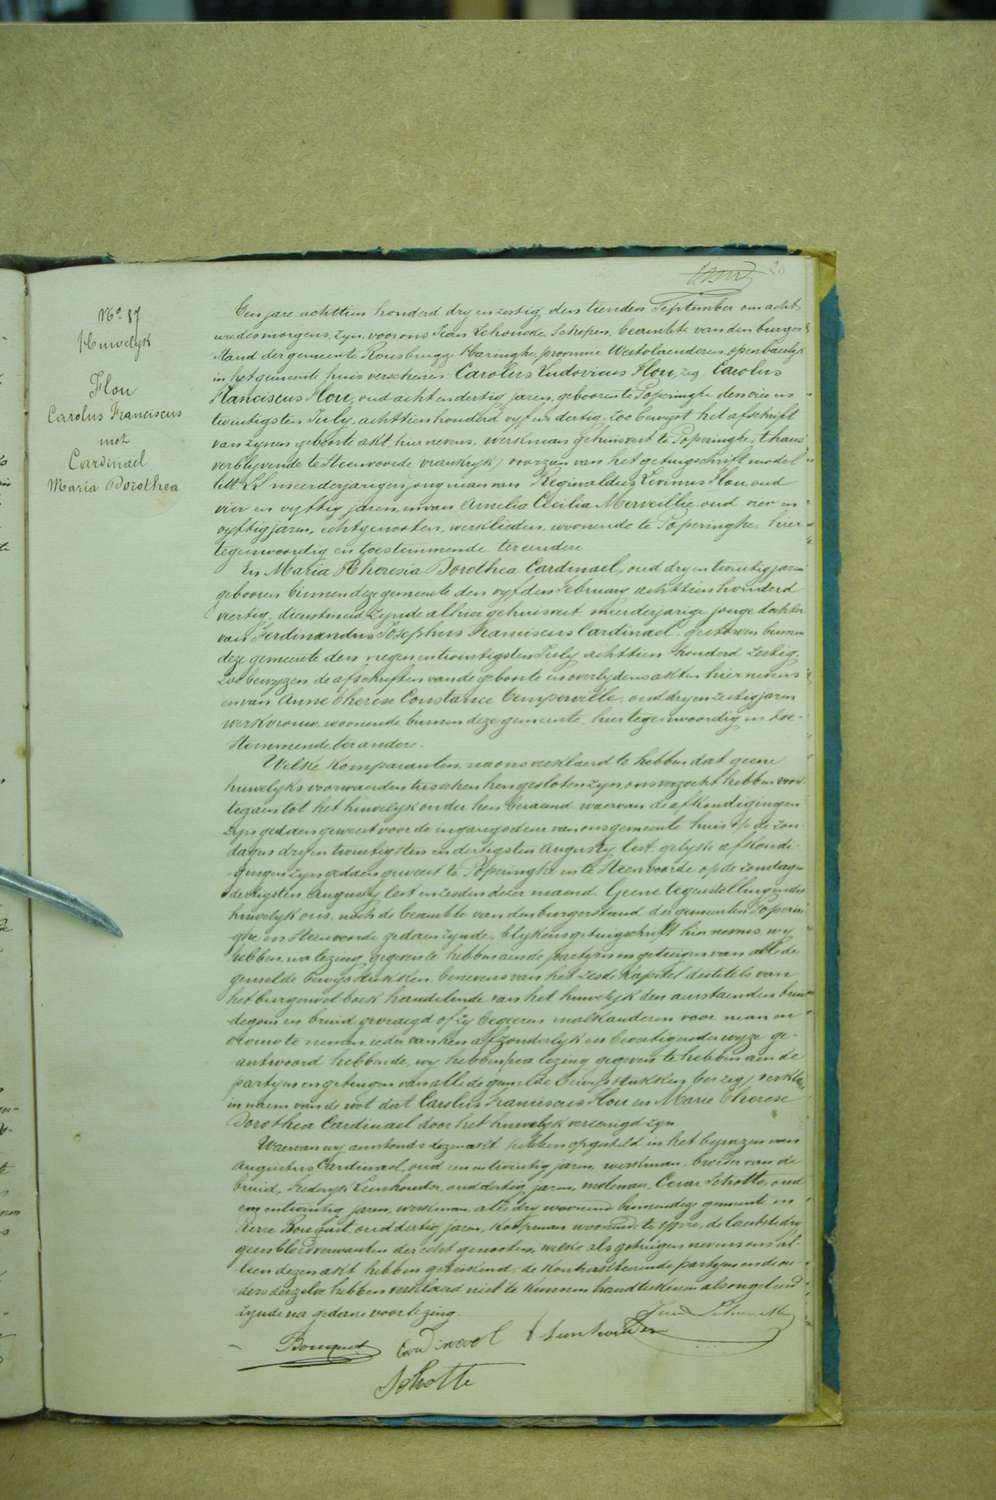 20
N.o 17
Huwelyk
Flou
Carolus Franciscus
met
Cardinael
Maria Dorothea
Een jare achttien honderd dry en zestig, den tienden September om acht
ure des morgens, zyn voor ons Jean Schoucke, Schepen, beambte van den burger
stand der gemeente Rousbrugge Haringhe, provincie Westvlaenderen, openbaerlyk
in het gemeente huis verschenen Carolus Ludovicus Flou, zeg Carolus
Franciscus Flou, oud acht en dertig jaren, geboren te Poperinghe den vier en
twintigsten July, achttien honderd vyf en dertig, zoo bewyst het afschrift
van zynen geboorte akt hier nevens, werkman gehuisvest te Poperinghe, thans
verblyvende te Steenvoorde (vrankryk) voorzien van het getuigschrift model
litt meerderjarigen jongman van Reginaldus Livinus Flou, oud
vier en vyftig jaren, en van Amelia Cecilia Merveillie, oud vier en
vyftig jaren, echtgenooten, werklieden, woonende te Poperinghe, hier
tegenwoordig en toestemmende ter eendere.
En Maria Theresia Dorothea Cardinael, oud dry en twintig jaren
geboren binnen deze gemeente den vyfden February achttien honderd
veertig, dienstmeid zynde alhier gehuisvest, meerderjarige jonge dochter
van Ferdinandus Josephus Franciscus Cardinael, gestorven binnen
deze gemeente den negen en twintigsten July achttien honderd zestig,
zoo bewyzen de afschriften van de geboorte en overlydens akten hier nevens
en van Anne Therese Constance, oud dry en zestig jaren
werkvrouw, woonende binnen deze gemeente, hier tegenwoordig en toe-
stemmende ter andere.
Welke komparanten, na ons verklaerd te hebben dat geene
huwelyks voorwaerden tusschen hen gesloten zyn, ons verzocht hebben voort
te gaen tot het huwelyk onder hen beraemd waervan de afkondigingen
zyn gedaen geweest voor de ingangsdeur van ons gemeente huis op de zon-
dagen dry en twintigsten en dertigsten Augusty lest, gelyke afkondi-
gingen zyn gedaen geweest te Poperinghe en te Steenvoorde op de zondagen
dertigsten Augusty lest en zesden dezer maend. Geene tegenstelling in dit
huwelyk ons, noch de beambte van den burgerstand der gemeenten Poperin-
ghe en Steenvoorde gedaen zynde, blykens getuigschrift hier nevens, wy
hebben, na lezing gegeven te hebben aen de partyen en getuigen van alle de
gemelde bewysstukken benevens van het zesde kapitel des titels van
het burgerwetboek handelende van het huwelyk den aenstaenden brui-
degom en bruid gevraegd of zy begeeren malkanderen voor man en
vrouw te nemen, ieder van hen afzonderlyk en bevestigender wyze ge-
antwoord hebbende, wy hebben (na lezing gegeven te hebben aen de
partyen en getuigen van alle de gemelde bewysstukken) verklaerd
in naem van de wet dat Carolus Franciscus Flou en Marie Therese
Dorothea Cardinael door het huwelyk vereenigd zyn
Waervan wy aenstonds dezen akt hebben opgesteld in het bywezen van
Augustus Cardinael, oud een en twintig jaren, werkman, broeder van de
bruid, Frederyk Leenhouder, oud dertig jaren, molenaer, Cesar Schotte, oud
een en twintig jaren, werkman, alle dry woonende binnen deze gemeente en
Pierre Bouquet, oud dertig jaren, koopman woonende te Ypre, de laetste dry
geen bloedverwanten der echt genooten, welke als getuigen nevens ons al-
leen dezen akt hebben geteekend; de kontrakteerende partyen en de ou-
ders derzelve hebben verklaerd niet te kunnen handteekenen als ongeleerd
zynde na gedane voorlezing.
Bouquet Cardinael Leenhouder
Schotte